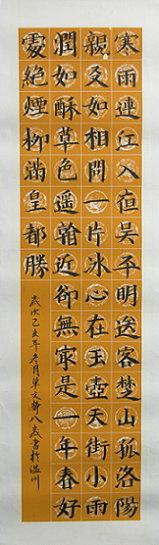 寒雨連江入夜吳平明送客楚山孤洛陽
親友如相問一片冰心在玉壺天街小雨
潤如酥草色遥看近卻無最是一年春好
處絕煙柳滿皇都勝
歲次己亥年冬月單文靜八歲書於溫州